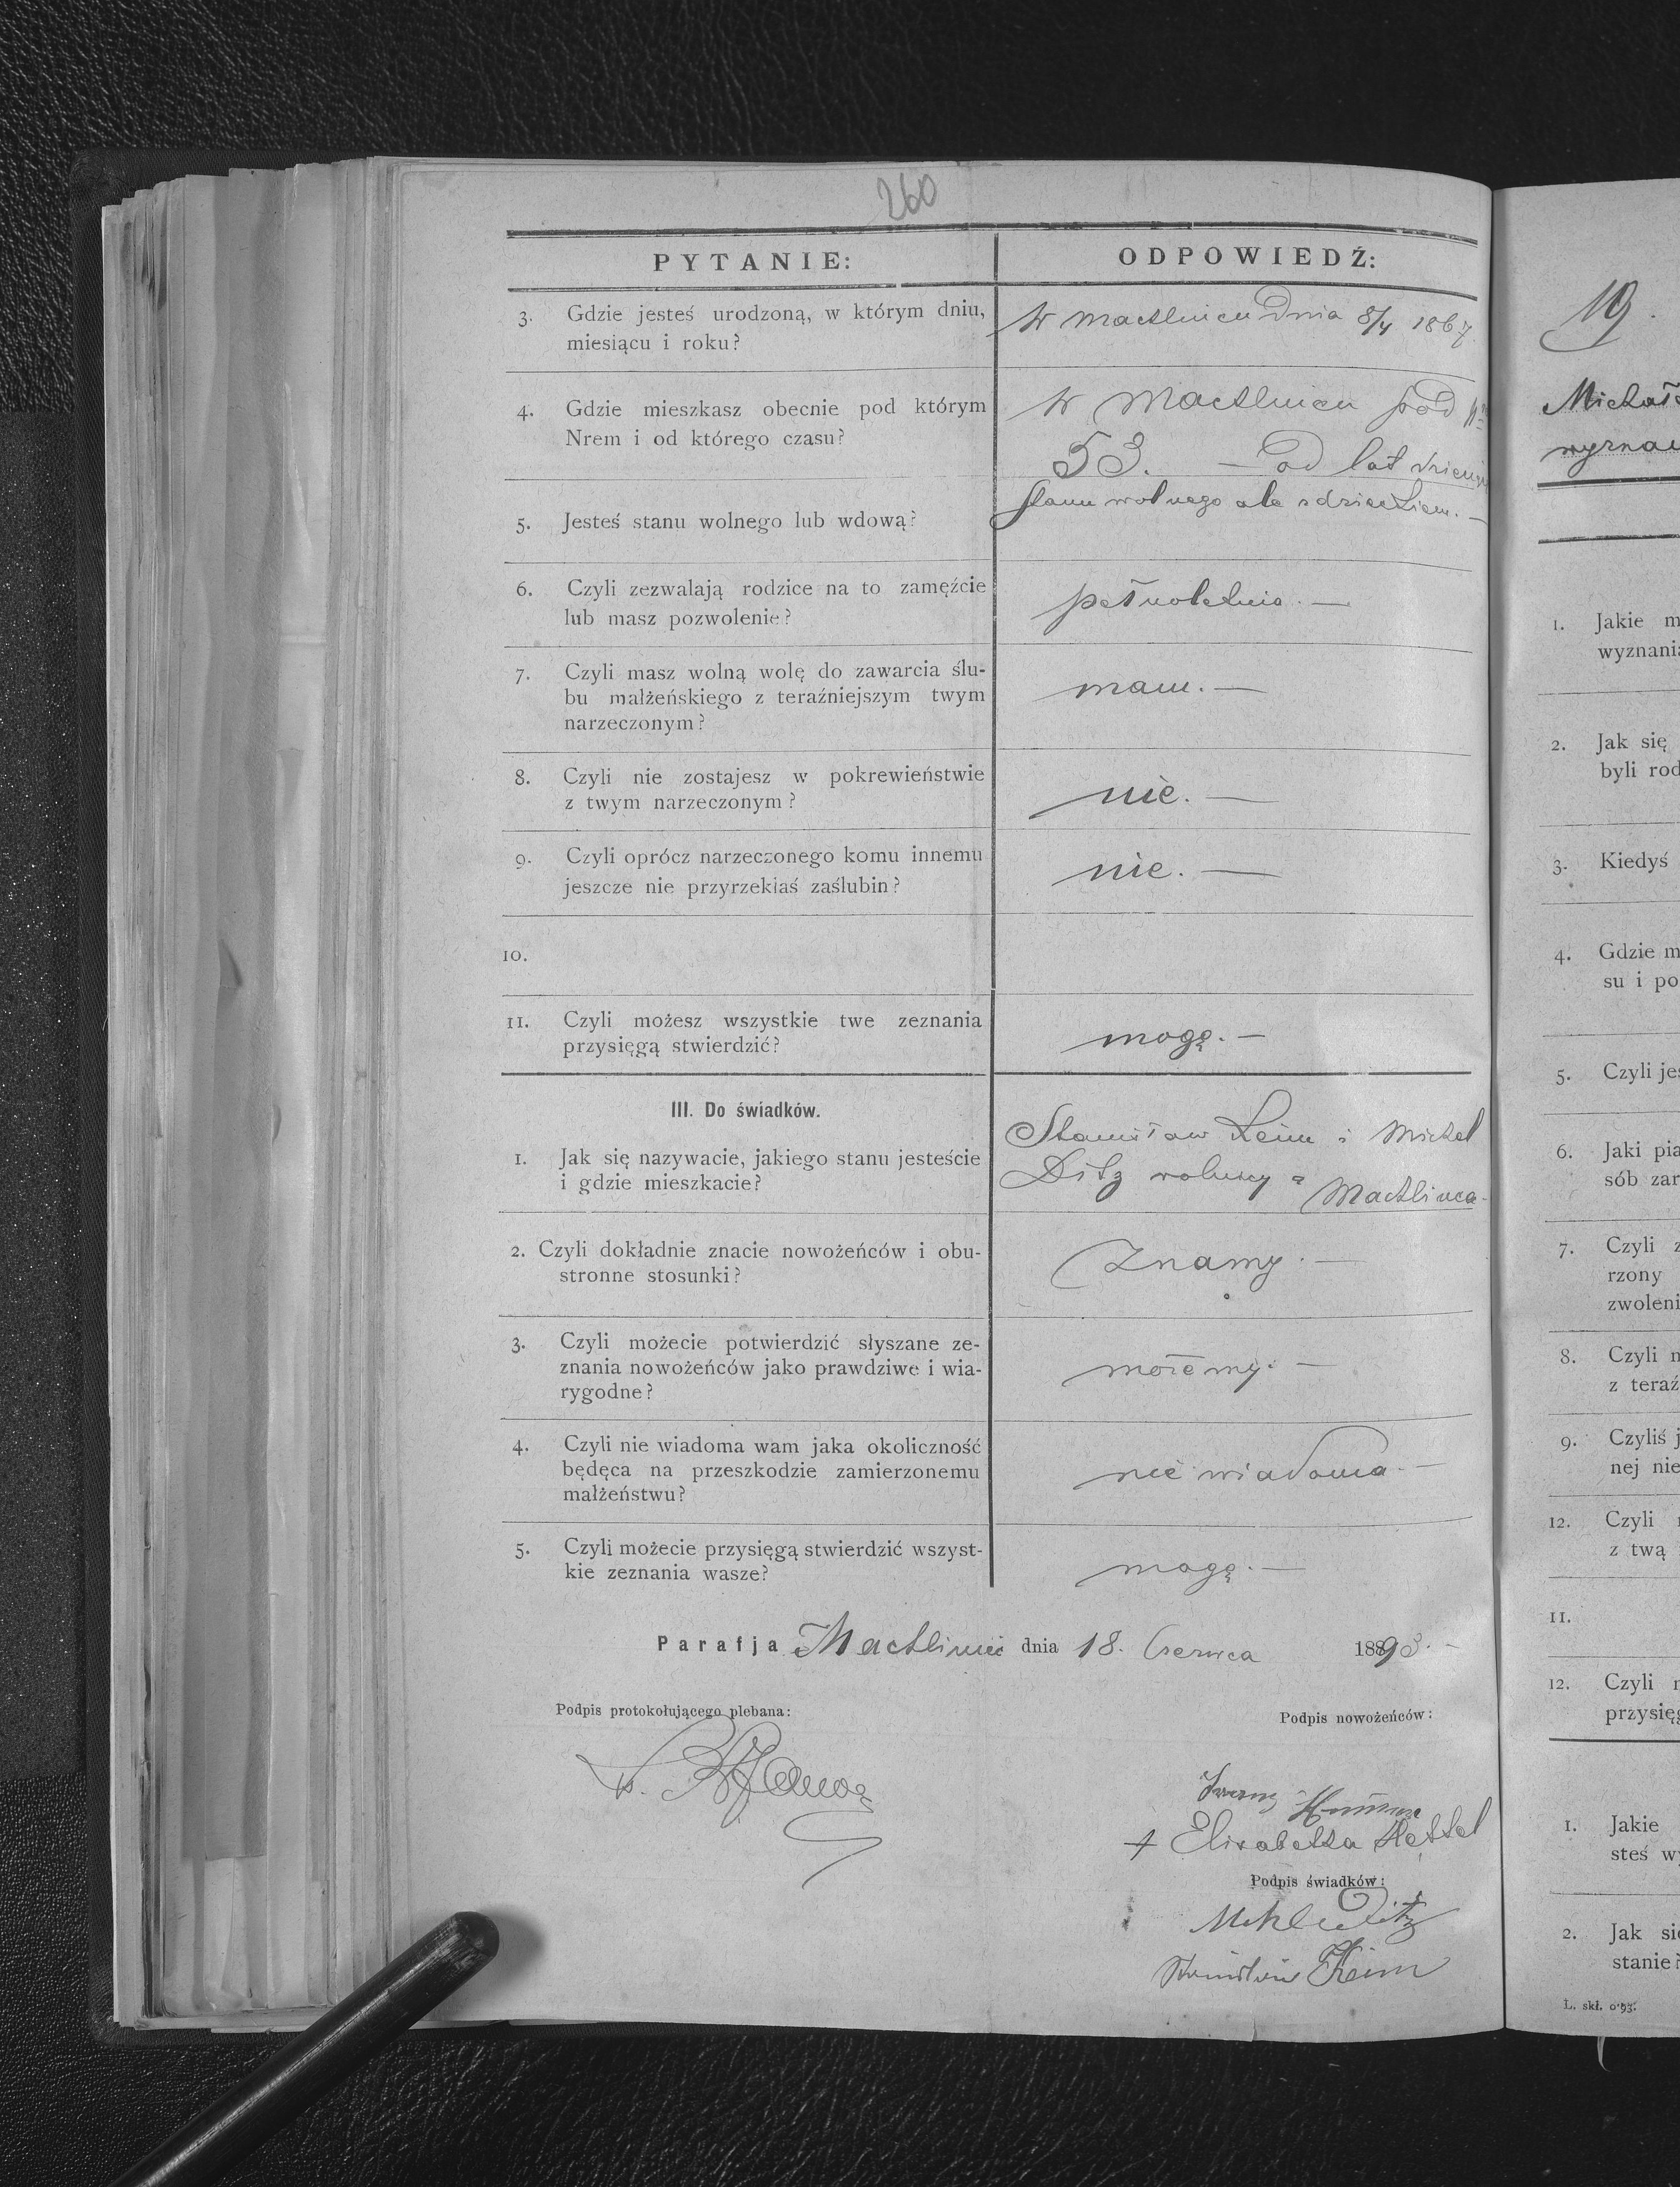 260
PYTANIE:
ODPOWIEDŹ:
3. Gdzie jesteś urodzoną, w którym dniu,
miesiącu i roku?
W Machlincu Dnia 8/4 1867
4. Gdzie mieszkasz obecnie pod którym
Nrem i od którego czasu?
W Machlincu pod
53. — od lat
5. Jesteś stanu wolnego lub wdową?
Stanu wolnego ale z dzieckiem. —
6. Czyli zezwalają rodzice na to zamęźcie
lub masz pozwolenie?
pełnoletnia. —
7. Czyli masz wolną wolę do zawarcia ślu-
bu małżeńskiego z teraźniejszym twym
narzeczonym?
mam. —
8. Czyli nie zostajesz w pokrewieństwie
z twym narzeczonym?
nie. —
9. Czyli oprócz narzeczonego komu innemu
jeszcze nie przyrzekłaś zaślubin?
nie. —
10.
11. Czyli możesz wszystkie twe zeznania
przysięgą stwierdzić?
mogę. —
III. Do świadków.
1. Jak się nazywacie, jakiego stanu jesteście
i gdzie mieszkacie?
Stanisław Keim i Michel
Ditz rolnicy z Machlinca
2. Czyli dokładnie znacie nowożeńców i obu-
stronne stosunki?
Znamy. —
3. Czyli możecie potwierdzić słyszane ze-
znania nowożeńców jako prawdziwe i wia-
rygodne?
możemy. —
4. Czyli nie wiadoma wam jaka okoliczność
będęca na przeszkodzie zamierzonemu
małżeństwu?
nie wiadoma. —
5. Czyli możecie przysięgą stwierdzić wszyst-
kie zeznania wasze?
mogę. —
Parafja Machliniec dnia 18. Czerwca 1893. —
Podpis protokołującego plebana:
Podpis nowożeńców:
Franz
+ Elisabetha Hettel
Podpis świadków:
Ditz
Stanislaus Keim
19.
1. Jakie m
wyznania
2. Jak się
byli rod
3. Kiedyś
4. Gdzie m
su i po
5. Czyli jes
6. Jaki pia
sób zar
7. Czyli z
rzony
zwoleni
8. Czyli n
z teraź
9. Czyliś j
nej nie
12. Czyli
z twą
11.
12. Czyli
przysięg
1. Jakie
steś wy
2. Jak się
stanie?
L. skł. 0·93.